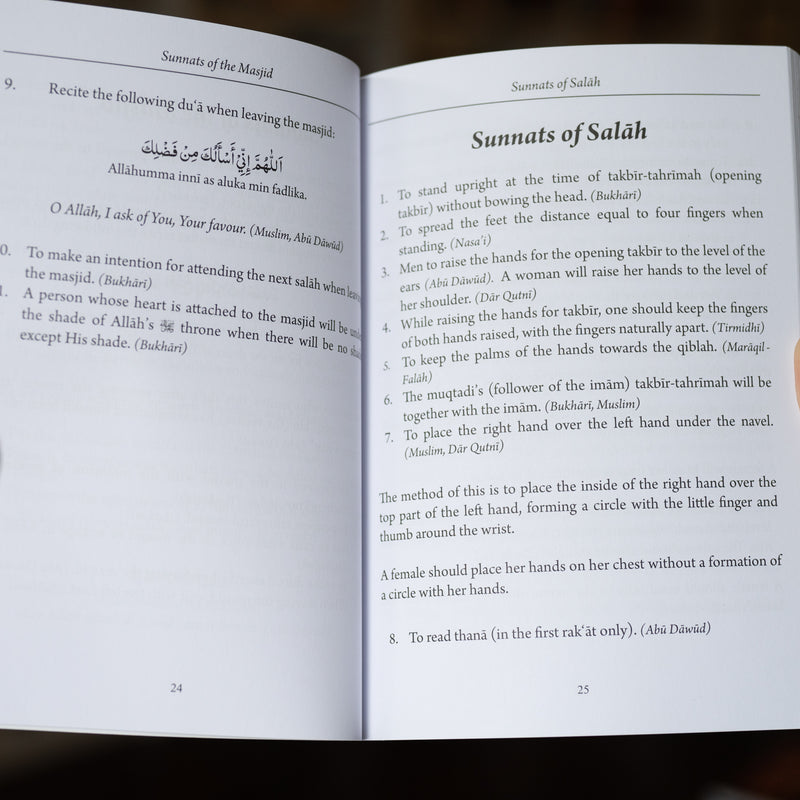 Sunnats of the Masjid
9. Recite the following du‘ā when leaving the masjid:
اَللّٰهُمَّ إِنِّيْ أَسْأَلُكَ مِنْ فَضْلِكَ
Allāhumma innī as aluka min fadlika.
O Allāh, I ask of You, Your favour. (Muslim, Abū Dāwūd)
0. To make an intention for attending the next salāh when
the masjid. (Bukhārī)
1. A person whose heart is attached to the masjid will be
the shade of Allāh’s ﷻ throne when there will be no
except His shade. (Bukhārī)
24
Sunnats of Salāh
Sunnats of Salāh
1. To stand upright at the time of takbīr-tahrīmah (opening
takbīr) without bowing the head. (Bukhārī)
2. To spread the feet the distance equal to four fingers when
standing. (Nasa’ī)
3. Men to raise the hands for the opening takbīr to the level of the
ears (Abū Dāwūd). A woman will raise her hands to the level of
her shoulder. (Dār Qutnī)
4. While raising the hands for takbīr, one should keep the fingers
of both hands raised, with the fingers naturally apart. (Tirmidhī)
5. To keep the palms of the hands towards the qiblah. (Marāqil-
Falāh)
6. The muqtadi’s (follower of the imām) takbīr-tahrīmah will be
together with the imām. (Bukhārī, Muslim)
7. To place the right hand over the left hand under the navel.
(Muslim, Dār Qutnī)
The method of this is to place the inside of the right hand over the
top part of the left hand, forming a circle with the little finger and
thumb around the wrist.
A female should place her hands on her chest without a formation of
a circle with her hands.
8. To read thanā (in the first rak‘āt only). (Abū Dāwūd)
25